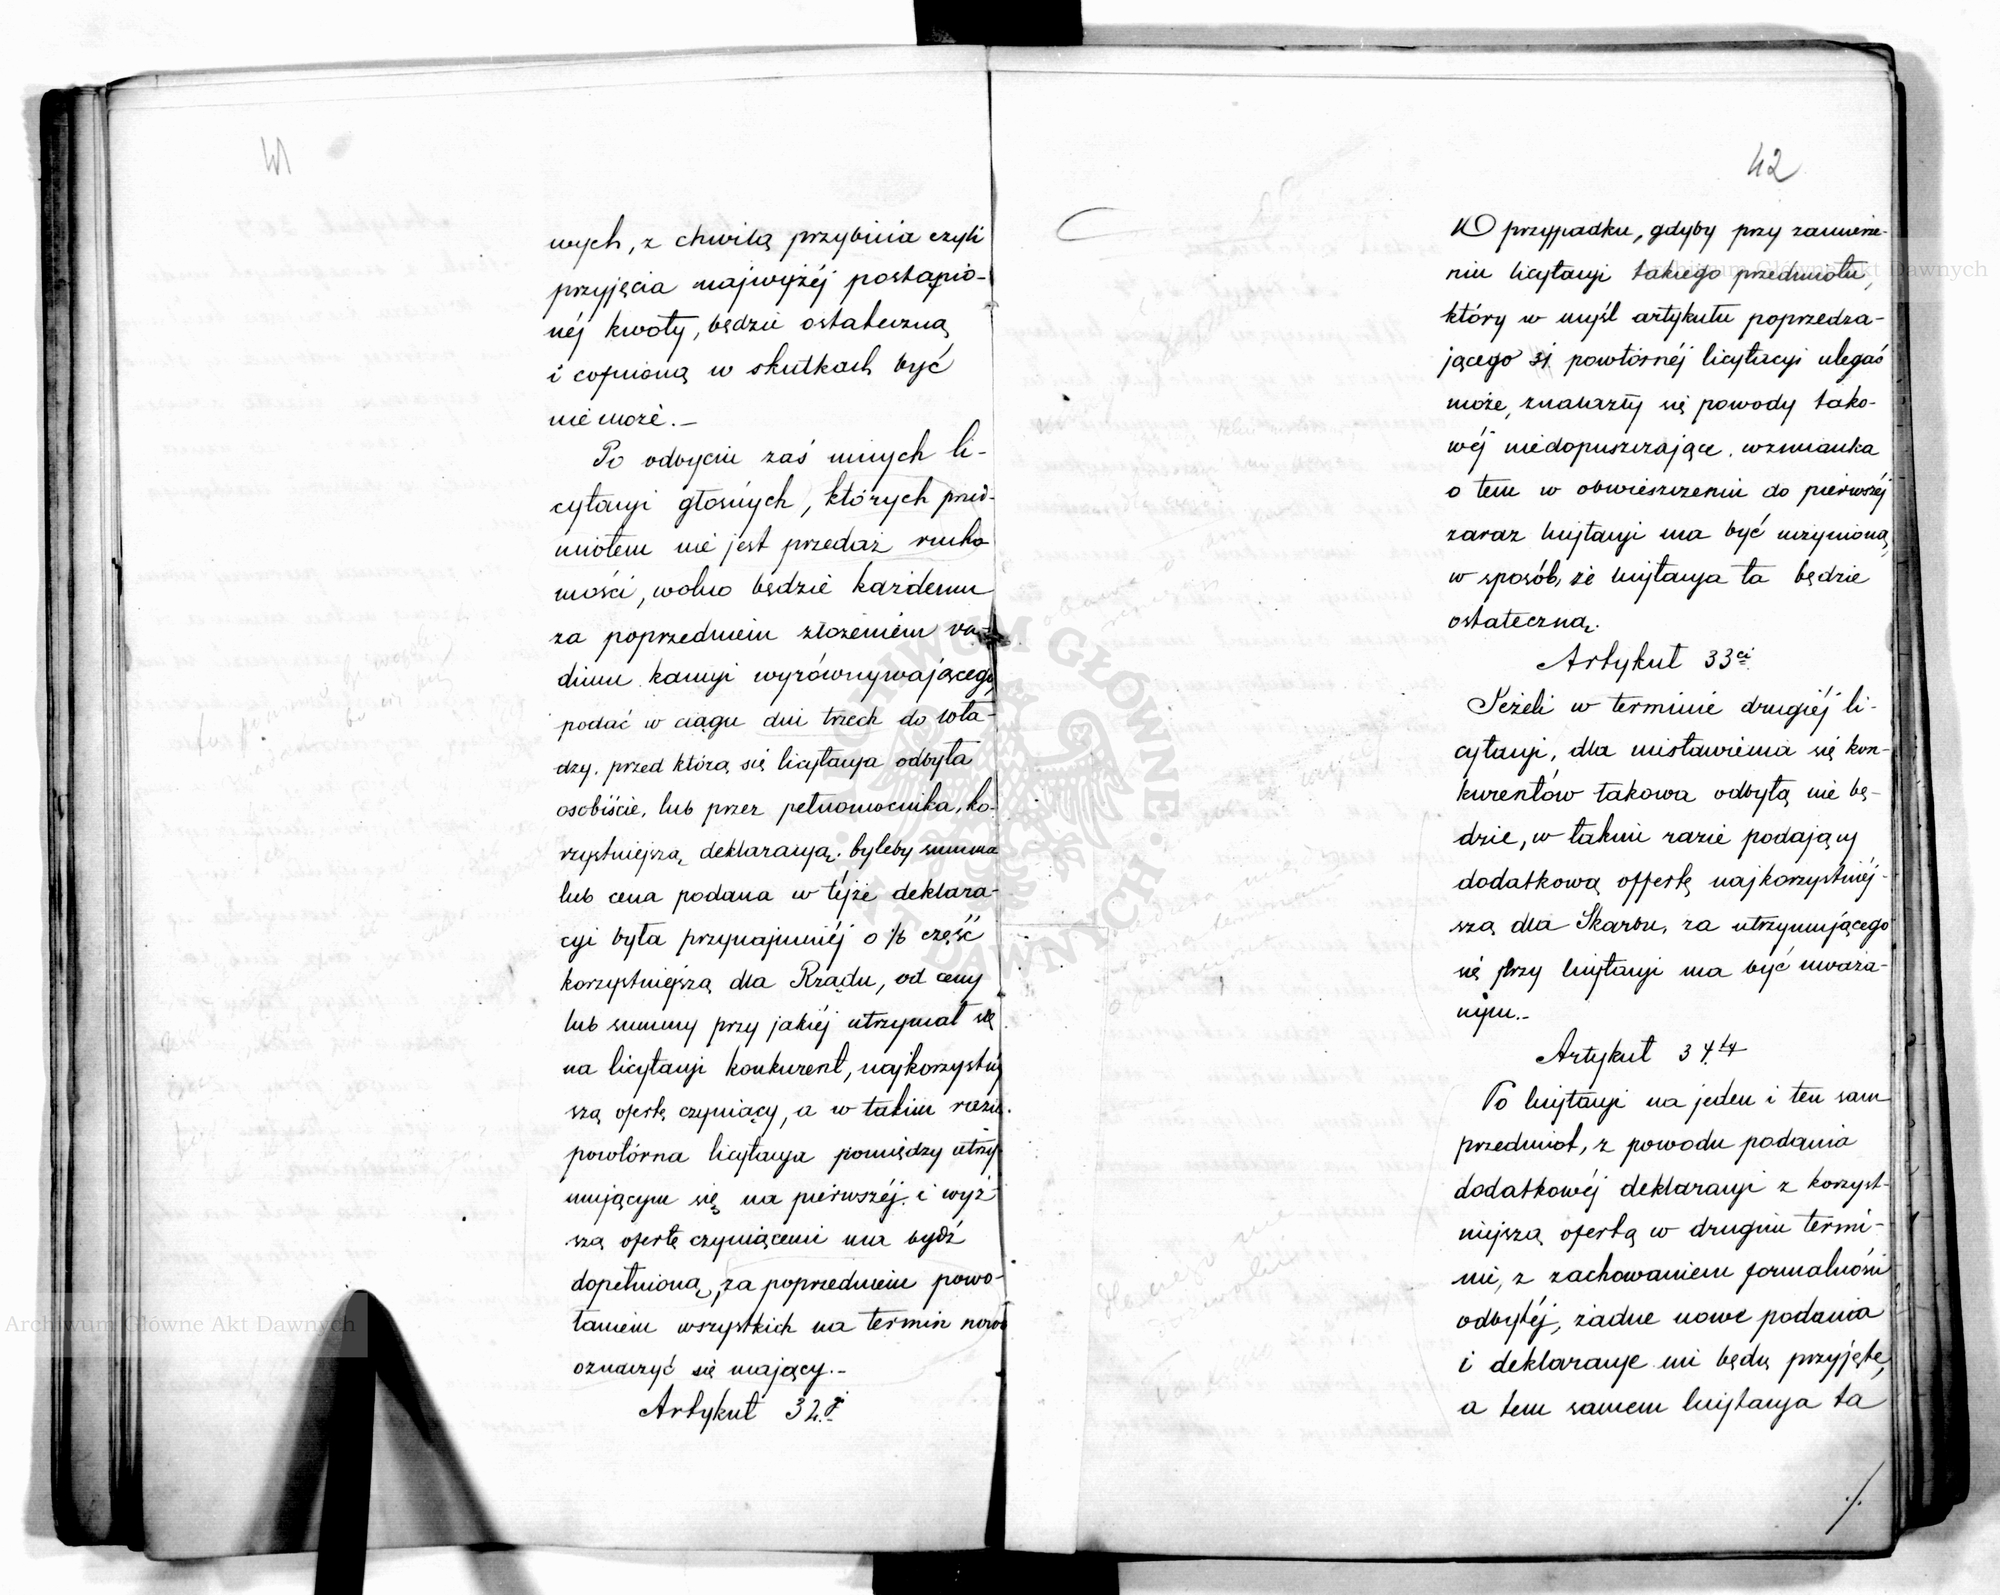 41
wych, z chwilą przybicia czyli
przyjęcia najwyżéj postąpio-
néj kwoty, będzie ostateczną
i cofnioną w skutkach być
nie może.—
Po odbyciu zaś innych li-
cytacyi głośnych, których przed-
miotem nie jest przedaż rucho
mości, wolno będzie każdemu
za poprzedniem złożeniem va-
dium kaucyi wyrównywającego
podać w ciągu dni trzech do wła-
dzy, przed którą się licytacya odbyła
osobiście, lub przez pełnomocnika, ko-
rzystniejszą deklaracyą, byleby summa
lub cena podana w téjże deklara-
cyi była przynajmniéj o 1/6 część
korzystniejszą dla Rządu, od ceny
lub summy przy jakiéj utrzymał się
na licytacyi konkurent, najkorzystniéj
szą ofertę czyniący, a w takim razie
powtórna licytacya pomiędzy utrzy-
mującym się na pierwszéj i wyż-
szą ofertę czyniącemi ma bydź
dopełnioną, za poprzedniem powo-
łaniem wszystkich na termin nowo
oznaczyć się mający.—
Artykuł 32gi
42
W przypadku, gdyby przy zamierze-
niu licytacyi takiego przedmiotu,
który w myśl artykułu poprzedza-
jącego powtórnéj licytacyi ulegać
może, znalazły się powody tako-
wéj niedopuszczające, wzmianka
o tem w obwieszczeniu do pierwszéj
zaraz licytacyi ma być uczynioną,
w sposób, że licytacya ta będzie
ostateczną.
Artykuł 33ci
Jeżeli w terminie drugiéj li-
cytacyi, dla niestawienia się kon-
kurentów takowa odbytą nie bę-
dzie, w takim razie podający
dodatkową offertę najkorzystniéj-
szą dla Skarbu, za utrzymującego
się przy licytacyi ma być uważa-
nym.—
Artykuł 34ty
Po licytacyi na jeden i ten sam
przedmiot, z powodu podania
dodatkowéj deklaracyi z korzyst-
niejszą ofertą w drugim termi-
nie, z zachowaniem formalności
odbytéj, żadne nowe podania
i deklaracye nie będą przyjęte,
a tem samem licytacya ta
./.
Archiwum Główne Akt Dawnych
Archiwum Główne Akt Dawnych
ARCHIWUM GŁÓWNE AKT DAWNYCH